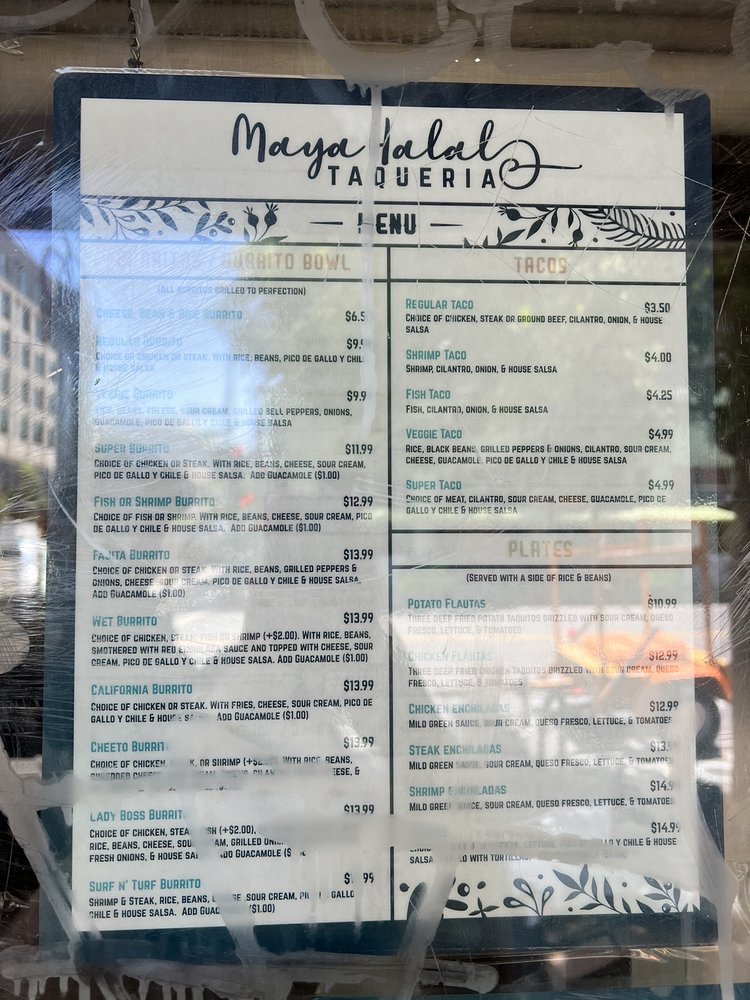 Maya Halal
TAQUERIA
MENU
BURRITOS / BURRITO BOWL
(ALL BURRITOS GRILLED TO PERFECTION)
CHEESE, BEAN & RICE BURRITO $6.5
REGULAR BURRITO $9.
CHOICE OF CHICKEN OR STEAK. WITH RICE, BEANS, PICO DE GALLO Y CHILE
& HOUSE SALSA
VEGGIE BURRITO $9.9
RICE, BEANS, CHEESE, SOUR CREAM, GRILLED BELL PEPPERS, ONIONS,
GUACAMOLE, PICO DE GALLO Y CHILE & HOUSE SALSA
SUPER BURRITO $11.99
CHOICE OF CHICKEN OR STEAK. WITH RICE, BEANS, CHEESE, SOUR CREAM,
PICO DE GALLO Y CHILE & HOUSE SALSA. ADD GUACAMOLE ($1.00)
FISH OR SHRIMP BURRITO $12.99
CHOICE OF FISH OR SHRIMP. WITH RICE, BEANS, CHEESE, SOUR CREAM, PICO
DE GALLO Y CHILE & HOUSE SALSA. ADD GUACAMOLE ($1.00)
FAJITA BURRITO $13.99
CHOICE OF CHICKEN OR STEAK. WITH RICE, BEANS, GRILLED PEPPERS &
ONIONS, CHEESE, SOUR CREAM, PICO DE GALLO Y CHILE & HOUSE SALSA.
ADD GUACAMOLE ($1.00)
WET BURRITO $13.99
CHOICE OF CHICKEN, STEAK, FISH OR SHRIMP (+$2.00). WITH RICE, BEANS,
SMOTHERED WITH RED ENCHILADA SAUCE AND TOPPED WITH CHEESE, SOUR
CREAM, PICO DE GALLO Y CHILE & HOUSE SALSA. ADD GUACAMOLE ($1.00)
CALIFORNIA BURRITO $13.99
CHOICE OF CHICKEN OR STEAK. WITH FRIES, CHEESE, SOUR CREAM, PICO DE
GALLO Y CHILE & HOUSE ADD GUACAMOLE ($1.00)
CHEETO BURRITO $13.99
CHOICE OF CHICKEN, OR SHRIMP WITH RICE, BEANS,
SHREDDED CHEESE, &
LADY BOSS BURRITO $13.99
CHOICE OF CHICKEN, STEAK (+$2.00),
RICE, BEANS, CHEESE, GRILLED
FRESH ONIONS, & HOUSE GUACAMOLE
SURF N' TURF BURRITO
SHRIMP & STEAK, RICE, BEANS, SOUR CREAM, GALLO
CHILE & HOUSE SALSA. ADD ($1.00)
TACOS
REGULAR TACO $3.50
CHOICE OF CHICKEN, STEAK OR GROUND BEEF, CILANTRO, ONION, & HOUSE
SALSA
SHRIMP TACO $4.00
SHRIMP, CILANTRO, ONION, & HOUSE SALSA
FISH TACO $4.25
FISH, CILANTRO, ONION, & HOUSE SALSA
VEGGIE TACO $4.99
RICE, BLACK BEANS, GRILLED PEPPERS & ONIONS, CILANTRO, SOUR CREAM,
CHEESE, GUACAMOLE, PICO DE GALLO Y CHILE & HOUSE SALSA
SUPER TACO $4.99
CHOICE OF MEAT, CILANTRO, SOUR CREAM, CHEESE, GUACAMOLE, PICO DE
GALLO Y CHILE & HOUSE SALSA
PLATES
(SERVED WITH A SIDE OF RICE & BEANS)
POTATO FLAUTAS $10.99
THREE DEEP FRIED POTATO TAQUITOS DRIZZLED WITH SOUR CREAM, QUESO
FRESCO, LETTUCE, & TOMATOES
CHICKEN FLAUTAS $12.99
THREE DEEP FRIED CHICKEN TAQUITOS DRIZZLED WITH SOUR CREAM, QUESO
FRESCO, LETTUCE, & TOMATOES
CHICKEN ENCHILADAS $12.99
MILD GREEN SAUCE, SOUR CREAM, QUESO FRESCO, LETTUCE, & TOMATOES
STEAK ENCHILADAS $13.9
MILD GREEN SAUCE, SOUR CREAM, QUESO FRESCO, LETTUCE, & TOMATOES
SHRIMP ENCHILADAS $14.9
MILD GREEN SAUCE, SOUR CREAM, QUESO FRESCO, LETTUCE, & TOMATOES
$14.99
Y CHILE & HOUSE
SALSA WITH TORTILLAS